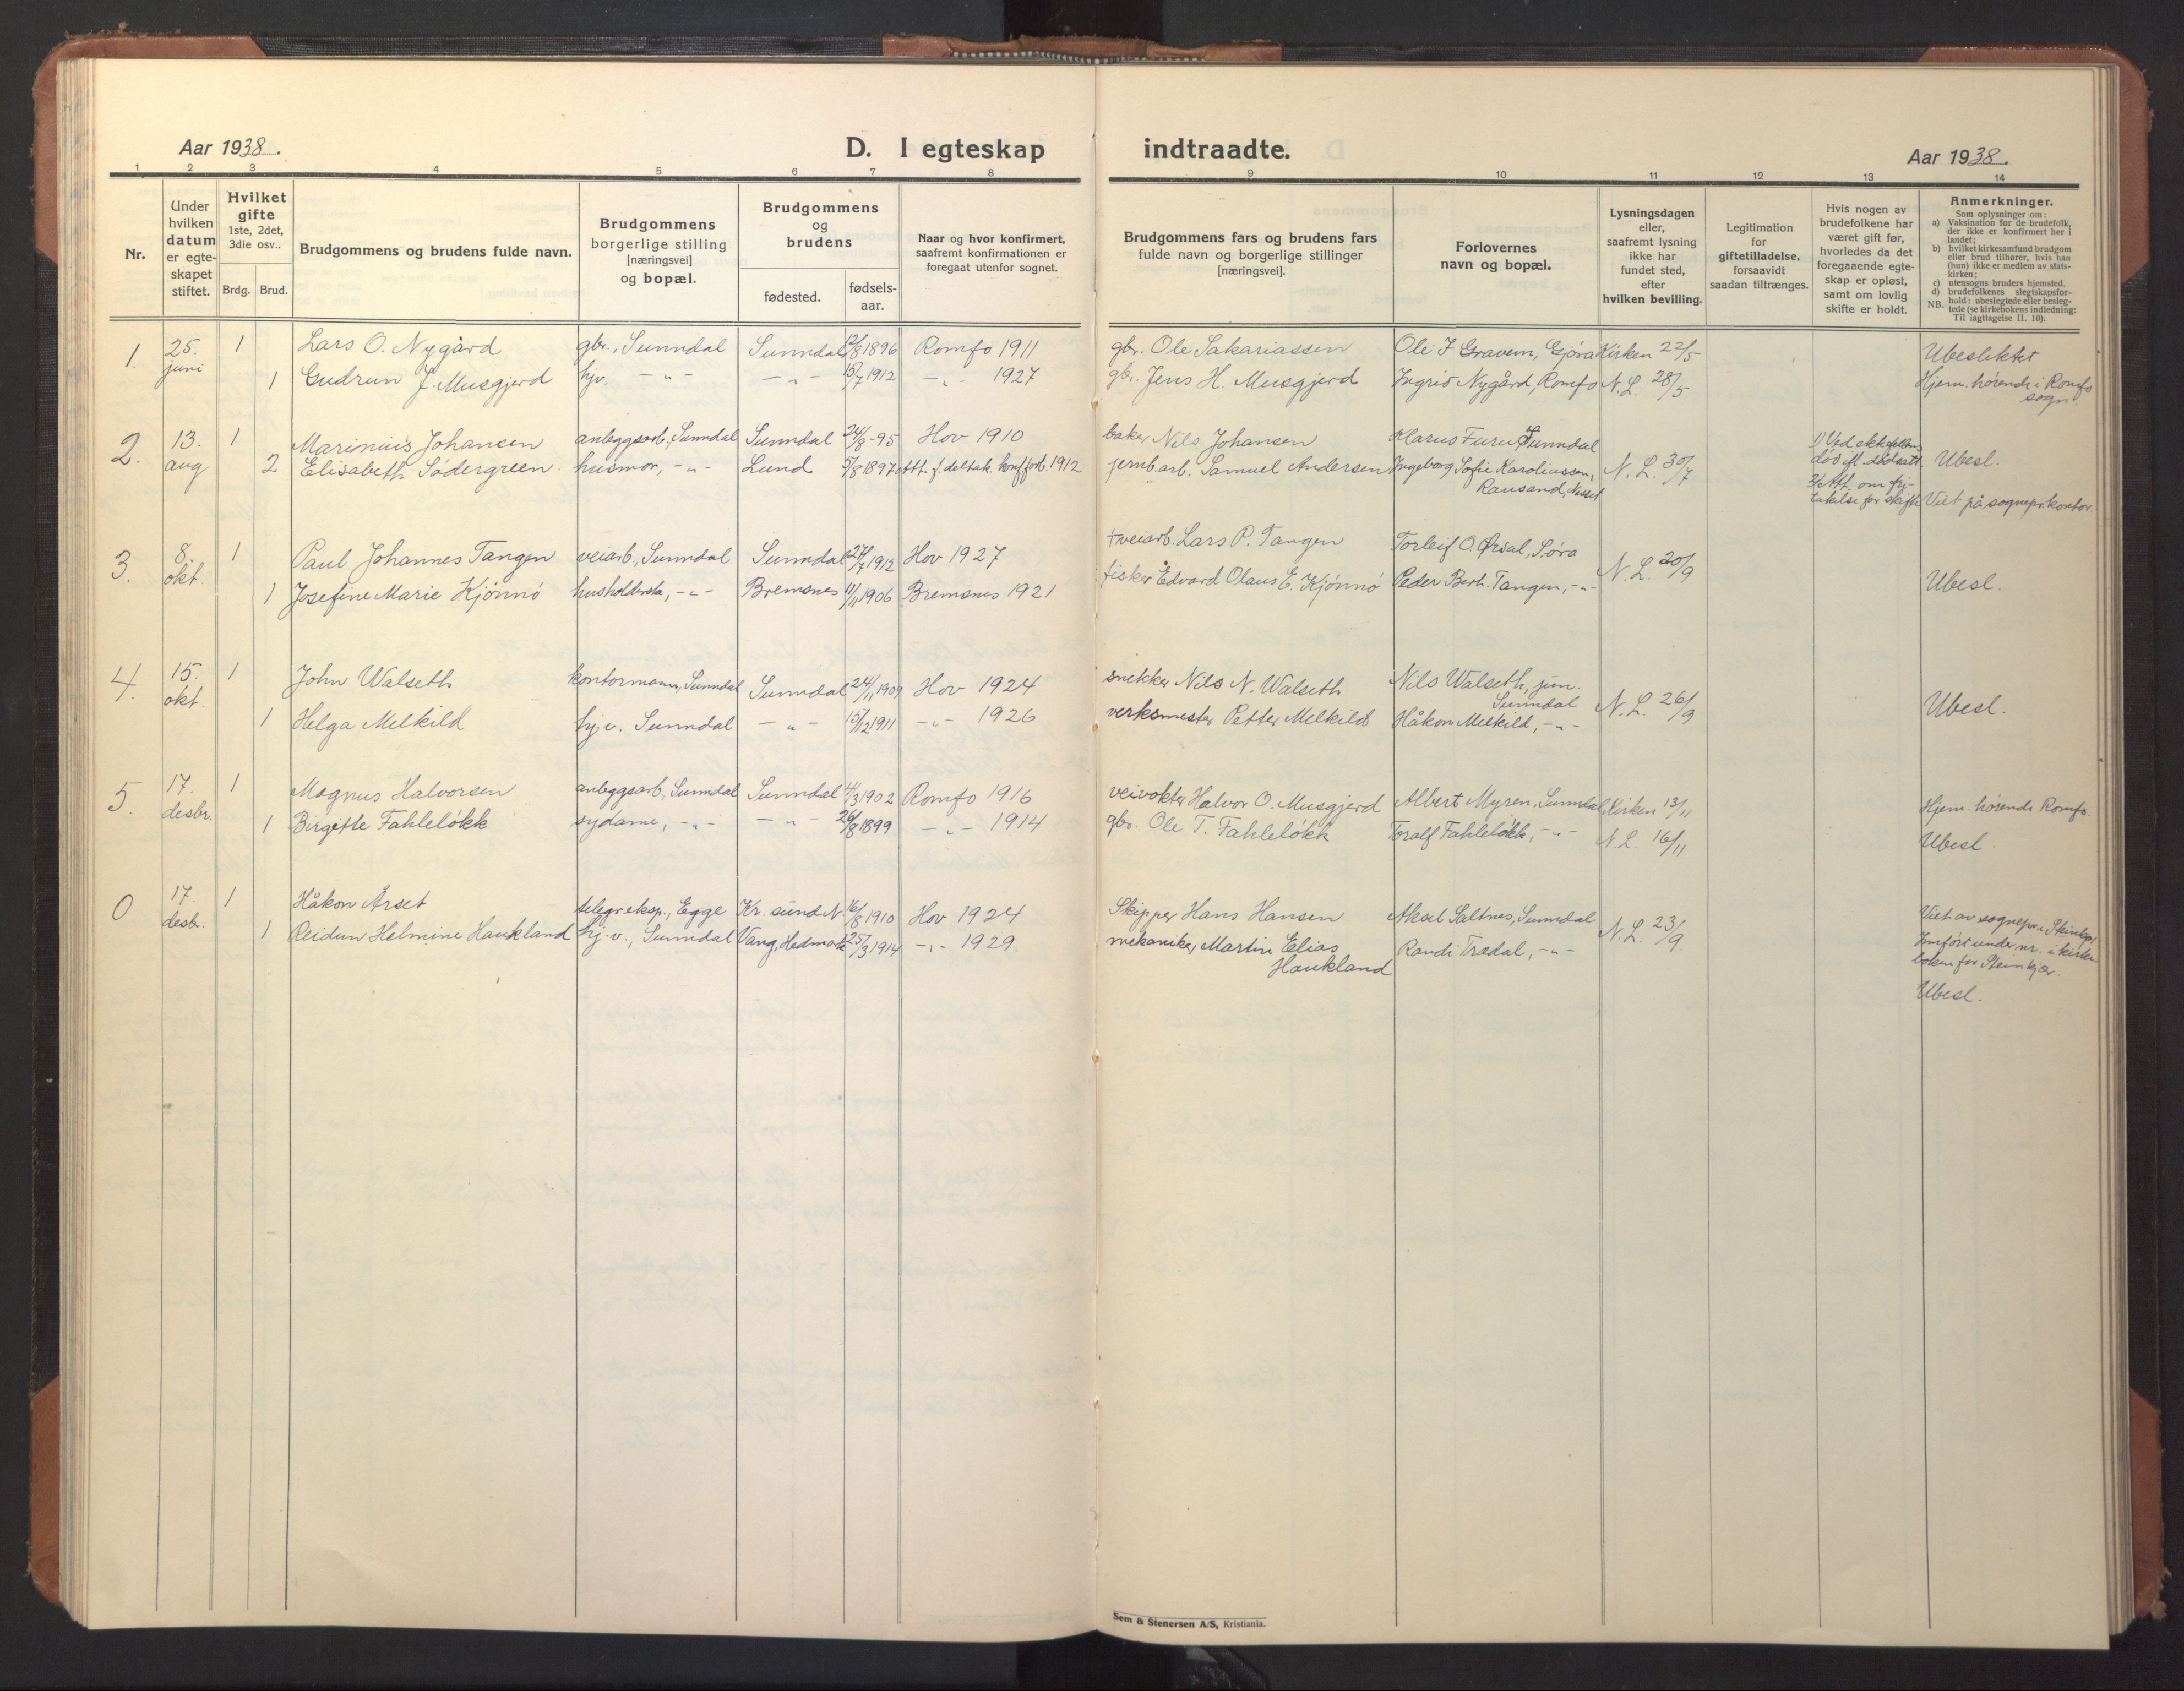 Aar 1938.
D. I egteskap indtraadte.
Aar 1938.
1 2 3 4 5 6 7 8 9 10 11 12 13 14
Nr.
Under hvilken datum er egteskapet stiftet.
Hvilket gifte 1ste, 2det, 3die osv..
Brdg. Brud.
Brudgommens og brudens fulde navn.
Brudgommens borgerlige stilling [næringsvei] og bopæl.
Brudgommens og brudens
fødested.
fødselsaar.
Naar og hvor konfirmert, saafremt konfirmationen er foregaat utenfor sognet.
Brudgommens fars og brudens fars fulde navn og borgerlige stillinger [næringsvei].
Forlovernes navn og bopæl.
Lysningsdagen eller, saafremt lysning ikke har fundet sted, efter hvilken bevilling.
Legitimation for giftetilladelse, forsaavidt saadan tiltrænges.
Hvis nogen av brudefolkene har været gift før, hvorledes da det foregaaende egteskap er opløst, samt om lovlig skifte er holdt.
Anmerkninger.
Som oplysninger om:
a) Vaksination for de brudefolk, der ikke er konfirmert her i landet;
b) hvilket kirkesamfund brudgom eller brud tilhører, hvis han (hun) ikke er medlem av statskirken;
c) utensogns bruders hjemsted.
d) brudefolkenes slegtskapsforhold: ubeslegtede eller beslegtede (se kirkebokens indledning: Til iagttagelse II. 10).
NB.
1. 25. juni 1 Lars O. Nygård gbr., Sunndal Sunndal /8 1896 Romfo 1911 gbr. Ole Sakariassen Ole J Gravem, Gjøra Kirken 22/5 Ubeslektet
1 Gudrun J. Musgjerd hjv. -"- -"- 15/7 1912 -"- 1927 gbr. Jens H. Musgjerd Ingrid Nygård, Romfo N.L. 28/5 Hjem. hørende i Romfo sogn.
2. 13. aug 1 Marinius Johansen anleggsarb., Sunndal Sunndal 24/8 -95 Hov 1910 baker Nils Johansen Klarus Furu, Sunndal 1) Ved ektefellens død ifl. dødsatt.
2 Elisabeth Södergreen husmor, -"- Lund 5/8 1897 Att. f. deltak. konf.forb. 1912 jernb.arb. Samuel Andersen Ingeborg Sofie Karoliussen, Rausand, Nesset N.L. 30/7 2) Att. om fritakelse for skifte Ubesl.
Viet på sognepr.kontor.
3. 8. okt. 1 Paul Johannes Tangen veiarb., Sunndal Sunndal 27/7 1912 Hov 1927 + veiarb. Lars P. Tangen Torleif O. Ørsal, S.øra N.L. 20/9
1 Josefine Marie Kjönnö husholderske, -"- Bremsnes 11/11 1906 Bremsnes 1921 fisker Edvard Olaus E. Kjönnö Peder Berh. Tangen, -"- Ubesl.
4. 15. okt. 1 John Walseth kontormann, Sunndal Sunndal 24/11 1909 Hov 1924 snekker Nils N. Walseth Nils Walseth, jun. Sunndal N.L. 26/9
1 Helga Melkild hjv. Sunndal -"- 15/12 1911 -"- 1926 verksmester Petter Melkild Håkon Melkild, -"- Ubesl.
5. 17. desbr. 1 Magnus Halvorsen anleggsarb., Sunndal Sunndal 4/3 1902 Romfo 1916 veivokter Halvor O. Musgjerd Albert Myren, Sunndal Kirken 13/11 Hjem. hørende Romfo.
1 Birgitte Fahleløkk sydame, -"- -"- 26/8 1899 -"- 1914 gbr. Ole T. Fahleløkk Toralf Fahleløkk, -"- N.L. 16/11 Ubesl.
0 17. desbr. 1 Håkon Årset telegr.eksp., Egge Kr.sund N. 16/8 1910 Hov 1924 Skipper Hans Hansen Aksel Saltnes, Sunndal N.L. 23/9. Viet av sognepr. i Steinkjer
1 Reidun Helmine Haukland hj.v., Sunndal Vang, Hedmark 25/3 1914 -"- 1929. mekaniker Martin Elias Haukland Randi Trædal, -"- Innført under nr. i kirkeboken for Steinkjer.
Ubesl.
Sem & Stenersen A/S, Kristiania.